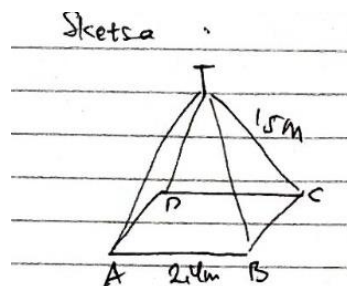 Sketsa
T
15m
D
C
A
2.4m
B